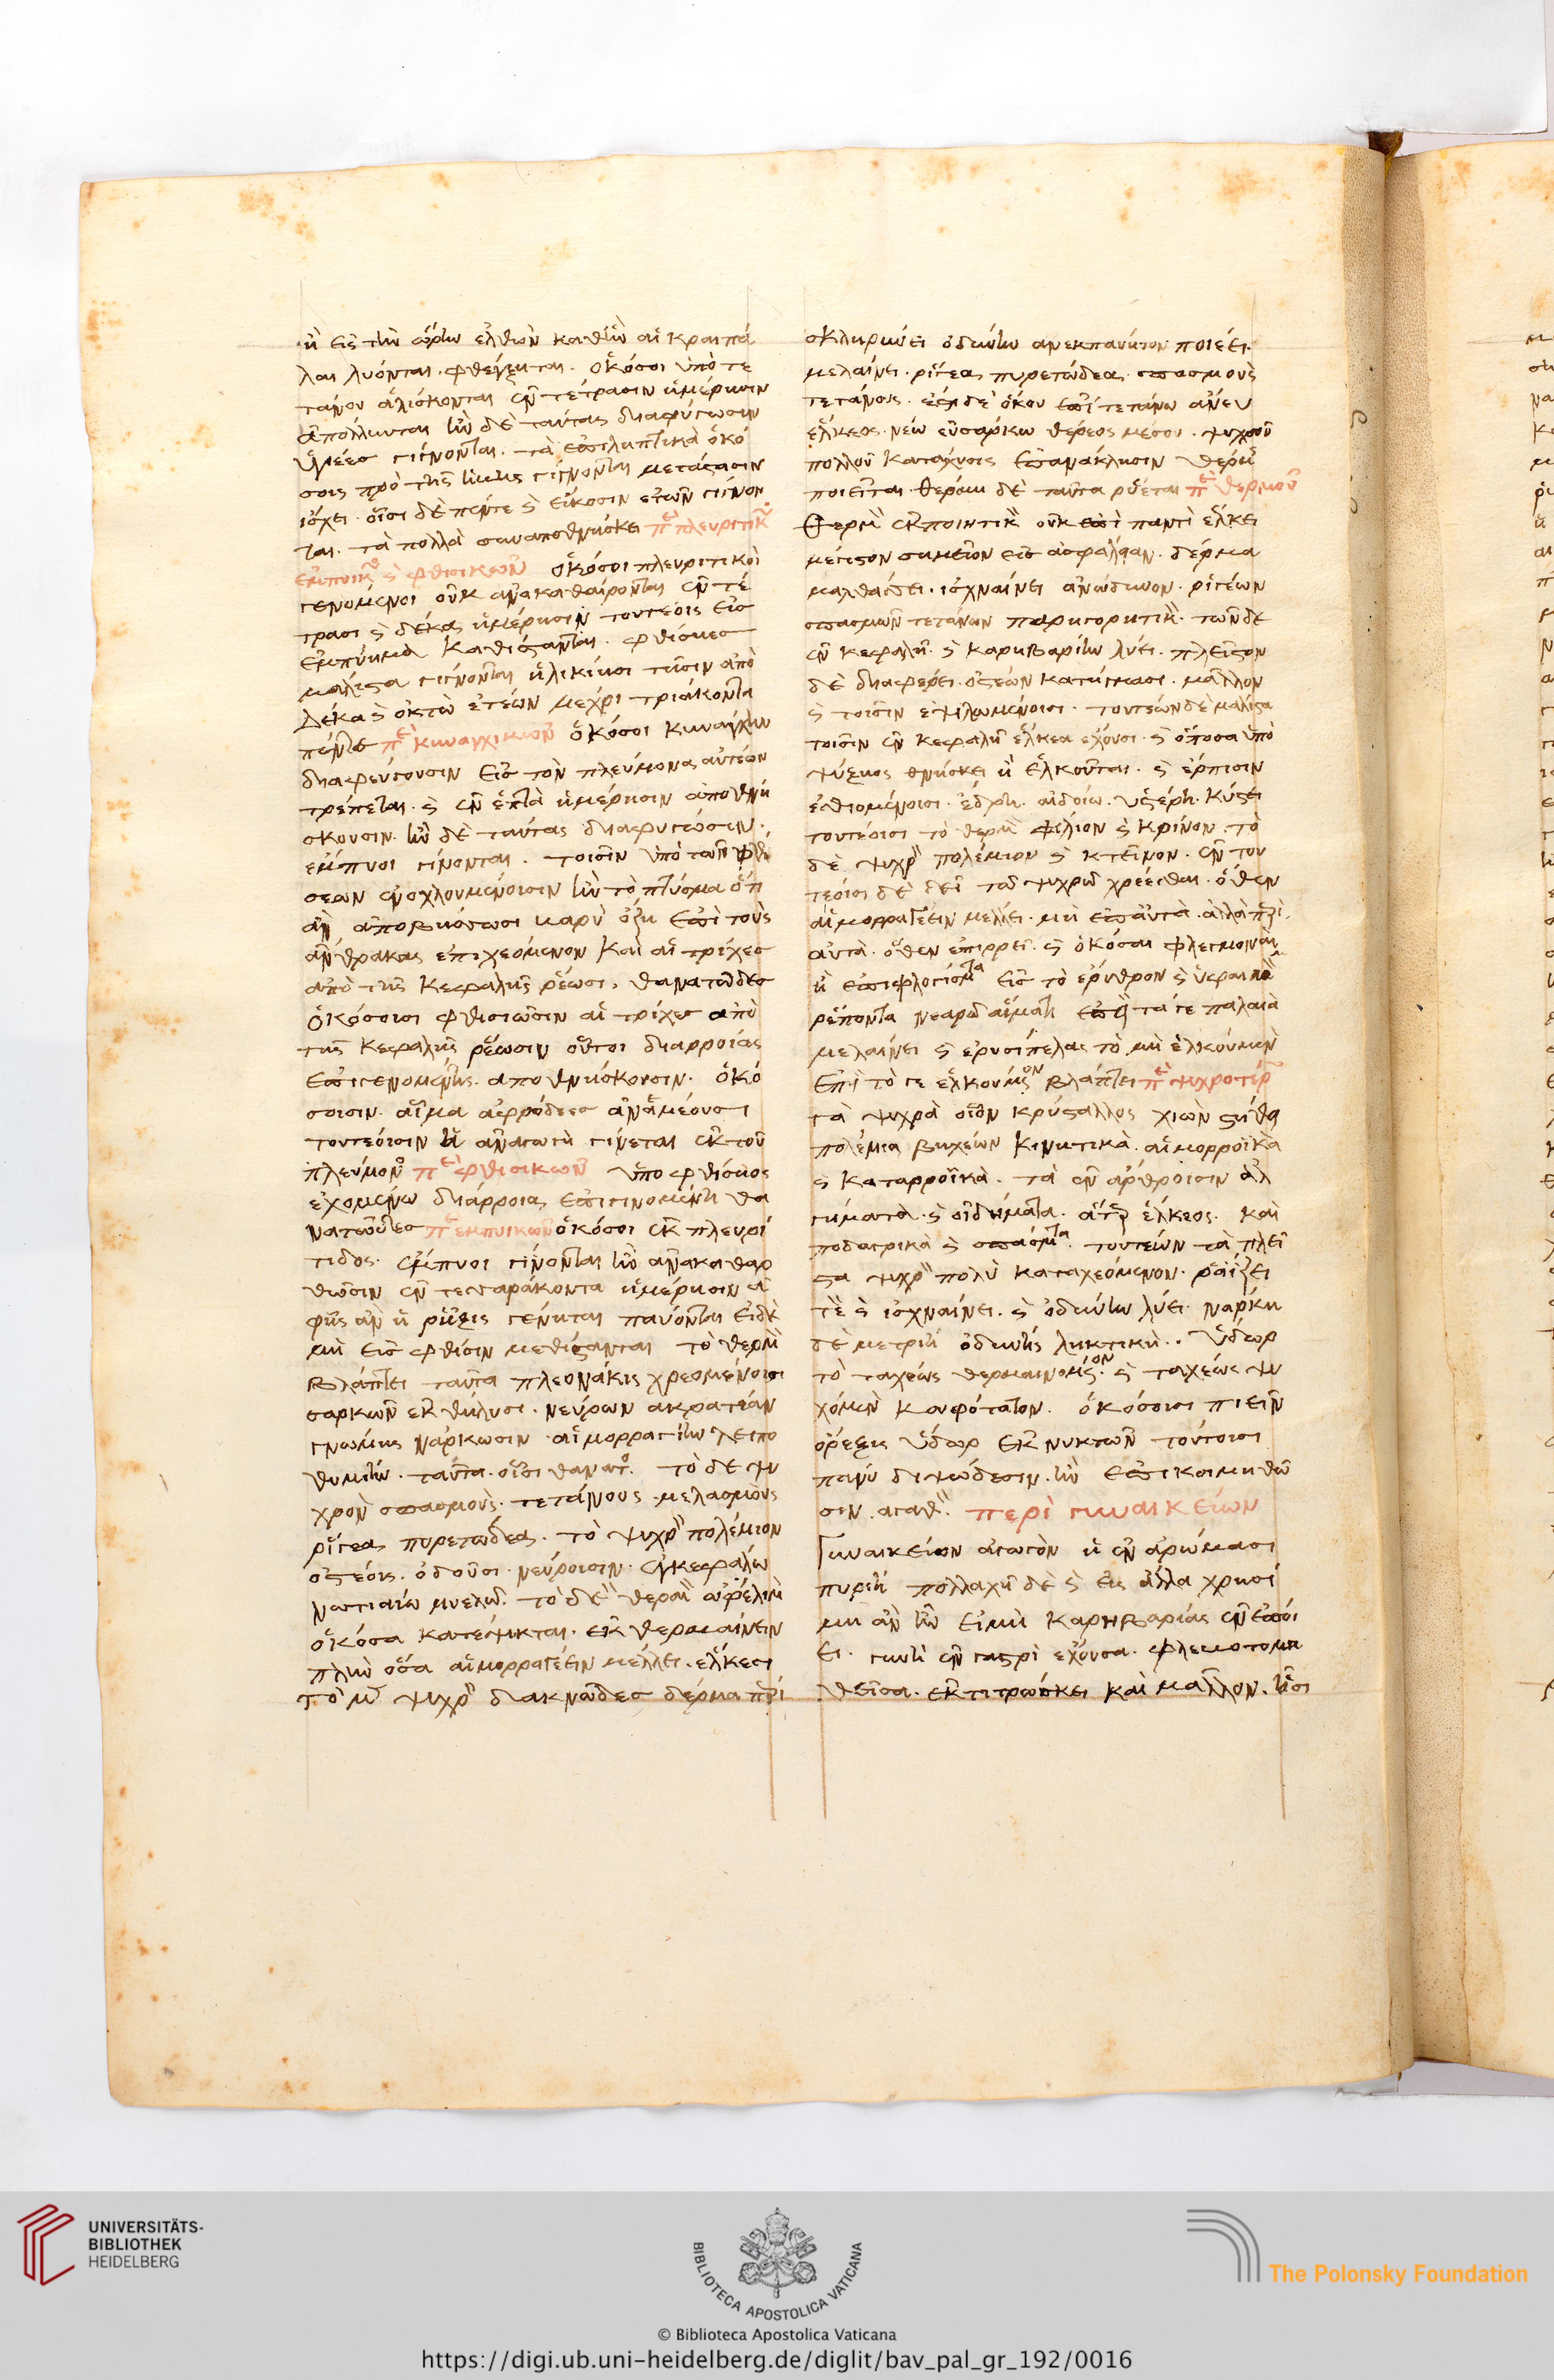 ἢ εἰς τὴν ὥρην ἐλθὼν καθ' ἣν αἱ κραιπά
λαι λύονται. φθέγξηται. ὁκόσοι ὑπὸ τε
τάνου ἁλίσκονται ἐν τέτρασιν ἡμέρησιν
ἀπόλλυνται ἢν δὲ ταύτας διαφύγωσιν
ὑγιέες γίγνονται. τὰ ἐπιληπτικὰ ὁκό
σοις πρὸ τῆς ἥβης γίγνονται μετάστασιν
ἰσχει. οἷσι δὲ πέντε καὶ εἴκοσιν ἐτῶν γίγνον
ται. τὰ πολλὰ συναποθνήσκει περὶ πλευριτικῶν
ἐμπυικῶν καὶ φθισικῶν ὁκόσοι πλευριτικοὶ
γενόμενοι οὐκ ἀνακαθαίρονται ἐν τέ
τρασι καὶ δέκα ἡμέρησιν τουτέοις εἰς
ἐμπύημα καθίσταται. φθίσιες
μάλιστα γίγνονται ἡλικίησι τῇσιν ἀπὸ
δέκα καὶ ὀκτὼ ἐτέων μεχρι τριάκοντα
πέντε περὶ κυναγχικῶν ὁκόσοι κυνάγχην
διαφεύγουσιν εἰς τὸν πλεύμονα αὐτέων
τρέπεται. καὶ ἐν ἑπτὰ ἡμέρησιν ἀποθνή
σκουσιν. ἢν δὲ ταύτας διαφύγωσιν.
ἔμπυοι γίνονται. τοῖσιν ὑπὸ τῶν φθι
σεων ἐνοχλουμένοισιν ἢν τὸ πτύσμα ὅτι
ἂν ἀποβήσσωσι βαρὺ ὄζῃ ἐπὶ τοὺς
ἄνθρακας ἐπιχεόμενον καὶ αἱ τρίχες
ἀπὸ τῆς κεφαλῆς ῥέωσι, θανατῶδες
ὁκόσοισι φθισιῶσιν αἱ τρίχες ἀπὸ
τῆς κεφαλῆς ῥέωσιν οὗτοι διαρροίας
ἐπιγενομένης. αποθνήσκουσιν. ὁκό
σοισιν. αἷμα ἀφρῶδες ἀναμέουσι
τουτέοισιν ἡ ἀναγωγὴ γίνεται ἐκ τοῦ
πλεύμονος περὶ φθισικῶν ὑπο φθίσιος
ἐχομένῳ διάρροια ἐπιγινομένη θα
νατῶδες περὶ ἐμπυικῶν ὁκόσοι ἐκ πλευρί
τιδος. ἔμπυοι γίνονται ἢν ἀνακαθαρ
θῶσιν ἐν τεσσαράκοντα ἡμέρησιν ἀ
φ' ἧς ἂν ἡ ῥῆξις γένηται παύονται εἰ δὲ
μὴ εἰς φθίσιν μεθίστανται τὸ θερμὸν
βλάπτει ταῦτα πλεονάκις χρεομένοισι
σαρκῶν ἐκθήλυσι. νεύρων ακρατείαν
γνώμης νάρκωσιν αἱμορραγίην λειπο
θυμίην. ταῦτα. οἷσι θάνατος. τὸ δὲ ψυ
χρὸν σπασμοὺς. τετάνους. μελασμοὺς
ῥίγεα πυρετώδεα. τὸ ψυχρὸν πολέμιον
ὀστέοις. ὀδοῦσι. νεύροισιν. ἐγκεφάλῳ
νωτιαίῳ μυελῷ. τὸ δὲ θερμὸν ὠφέλιμον
ὁκόσα κατέψυκται. ἐκθερμαίνειν
πλὴν ὅσα αἱμορραγέειν μέλλει. ἕλκεσι
τὸ μὲν ψυχρὸν δακνῶδες δέρμα περι
σκληρύνει ὀδύνην ἀνεκπύητον ποιέει.
μελαίνει. ῥίγεα πυρετώδεα. σπασμοὺς
τετάνους. ἔστι δὲ ὅκου ἐπὶ τετάνῳ ἄνευ
ἕλκεος. νέῳ εὐσάρκῳ θέρεος μέσου. ψυχροῦ
πολλοῦ κατάχυσις ἐπανάκλησιν θέρμης
ποιεῖται. θέρμη δὲ ταῦτα ῥύεται περὶ θερμοῦ
Θερμὸν ἐκποιητικὸν οὐκ ἐπὶ παντὶ ἕλκει
μέγιστον σημεῖον εἰς ἀσφαλίην. δέρμα
μαλθάσσει. ἰσχναίνει ἀνώδυνον. ῥιγέων
σπασμῶν τετάνων παρηγορητικὸν. τῶν δὲ
ἐν κεφαλῇ. καὶ καρηβαρίην λύει. πλεῖστον
δὲ διαφέρει. ὀστέων κατήγμασι. μᾶλλον
καὶ τοῖσιν ἐψιλωμένοισι. τουτέων δὲ μάλιστα
τοῖσιν ἐν κεφαλῇ ἕλκεα εχουσι. καὶ ὁποσα ὑπὸ
ψύξιος θνήσκει ἢ ἑλκοῦται. καὶ ἕρπησιν
ἐσθιομένοισι. ἕδρη. αἰδοίῳ. ὑστέρη. κύστει
τουτέοισι τὸ θερμὸν φίλιον καὶ κρίνον. τὸ
δὲ ψυχρὸν πολέμιον καὶ κτεῖνον. ἐν του
τέοισι δὲ δεῖ τῷ ψυχρῷ χρέεσθαι. ὅθεν
αἱμορραγέειν μέλλει. μὴ ἐπ' αὐτὰ. ἀλλὰ περὶ
αὐτὰ. ὅθεν ἐπιρρεῖ. καὶ ὁκόσαι φλεγμοναὶ
ἢ ἐπιφλογίσματα εἰς τὸ ἐρυθρὸν καὶ ὕφαιμον
ῥέποντα νεαρῷ αἵματι ἐπεὶ τά γε παλαιὰ
μελαίνει καὶ ἐρυσίπελας τὸ μὴ ἑλκούμενον
Επὶ τό γε ἑλκούμενον βλάπτει περὶ ψυχροτέρων
τὰ ψυχρὰ οἷον κρύσταλλος χιὼν στήθη
πολέμια βηχέων κινητικὰ. αἱμορροϊκὰ
καὶ καταρροϊκὰ. τὰ ἐν ἄρθροισιν ἀλ
γήματα. καὶ οἰδήματα. ἄτερ ἕλκεος. καὶ
ποδαγρικὰ καὶ σπάσματα. τουτέων τὰ πλεῖ
στα ψυχρὸν πολὺ καταχεόμενον. ῥαΐζει
τὲ καὶ ἰσχναίνει. καὶ ὀδύνην λύει. νάρκη
δὲ μετρίη ὀδύνης ληκτικὴ. ὕδωρ
τὸ ταχέως θερμαινόμενον. καὶ ταχέως ψυ
χόμενον κουφότατον. ὁκόσοισι πιεῖν
ὄρεξις ὕδωρ ἐκ νυκτῶν τούτοισι
πάνυ διψώδεσιν. ἢν ἐπικοιμηθῶ
σιν. αγαθὸν. περὶ γυναικείων
Γυναικείων ἀγωγὸν ἡ ἐν ἀρώμασι
πυρίη πολλαχῇ δὲ καὶ εἰς ἄλλα χρησί
μη ἂν ἦν εἰ μὴ καρηβαρίας ἐνεποί
ει. γυνὴ ἐν γαστρὶ ἔχουσα. φλεβοτομη
θεῖσα. ἐκτιτρώσκει καὶ μᾶλλον. ἧσι
UNIVERSITÄTS-
BIBLIOTHEK
HEIDELBERG
BIBLIOTECA APOSTOLICA VATICANA
The Polonsky Foundation
© Biblioteca Apostolica Vaticana
https://digi.ub.uni-heidelberg.de/diglit/bav_pal_gr_192/0016